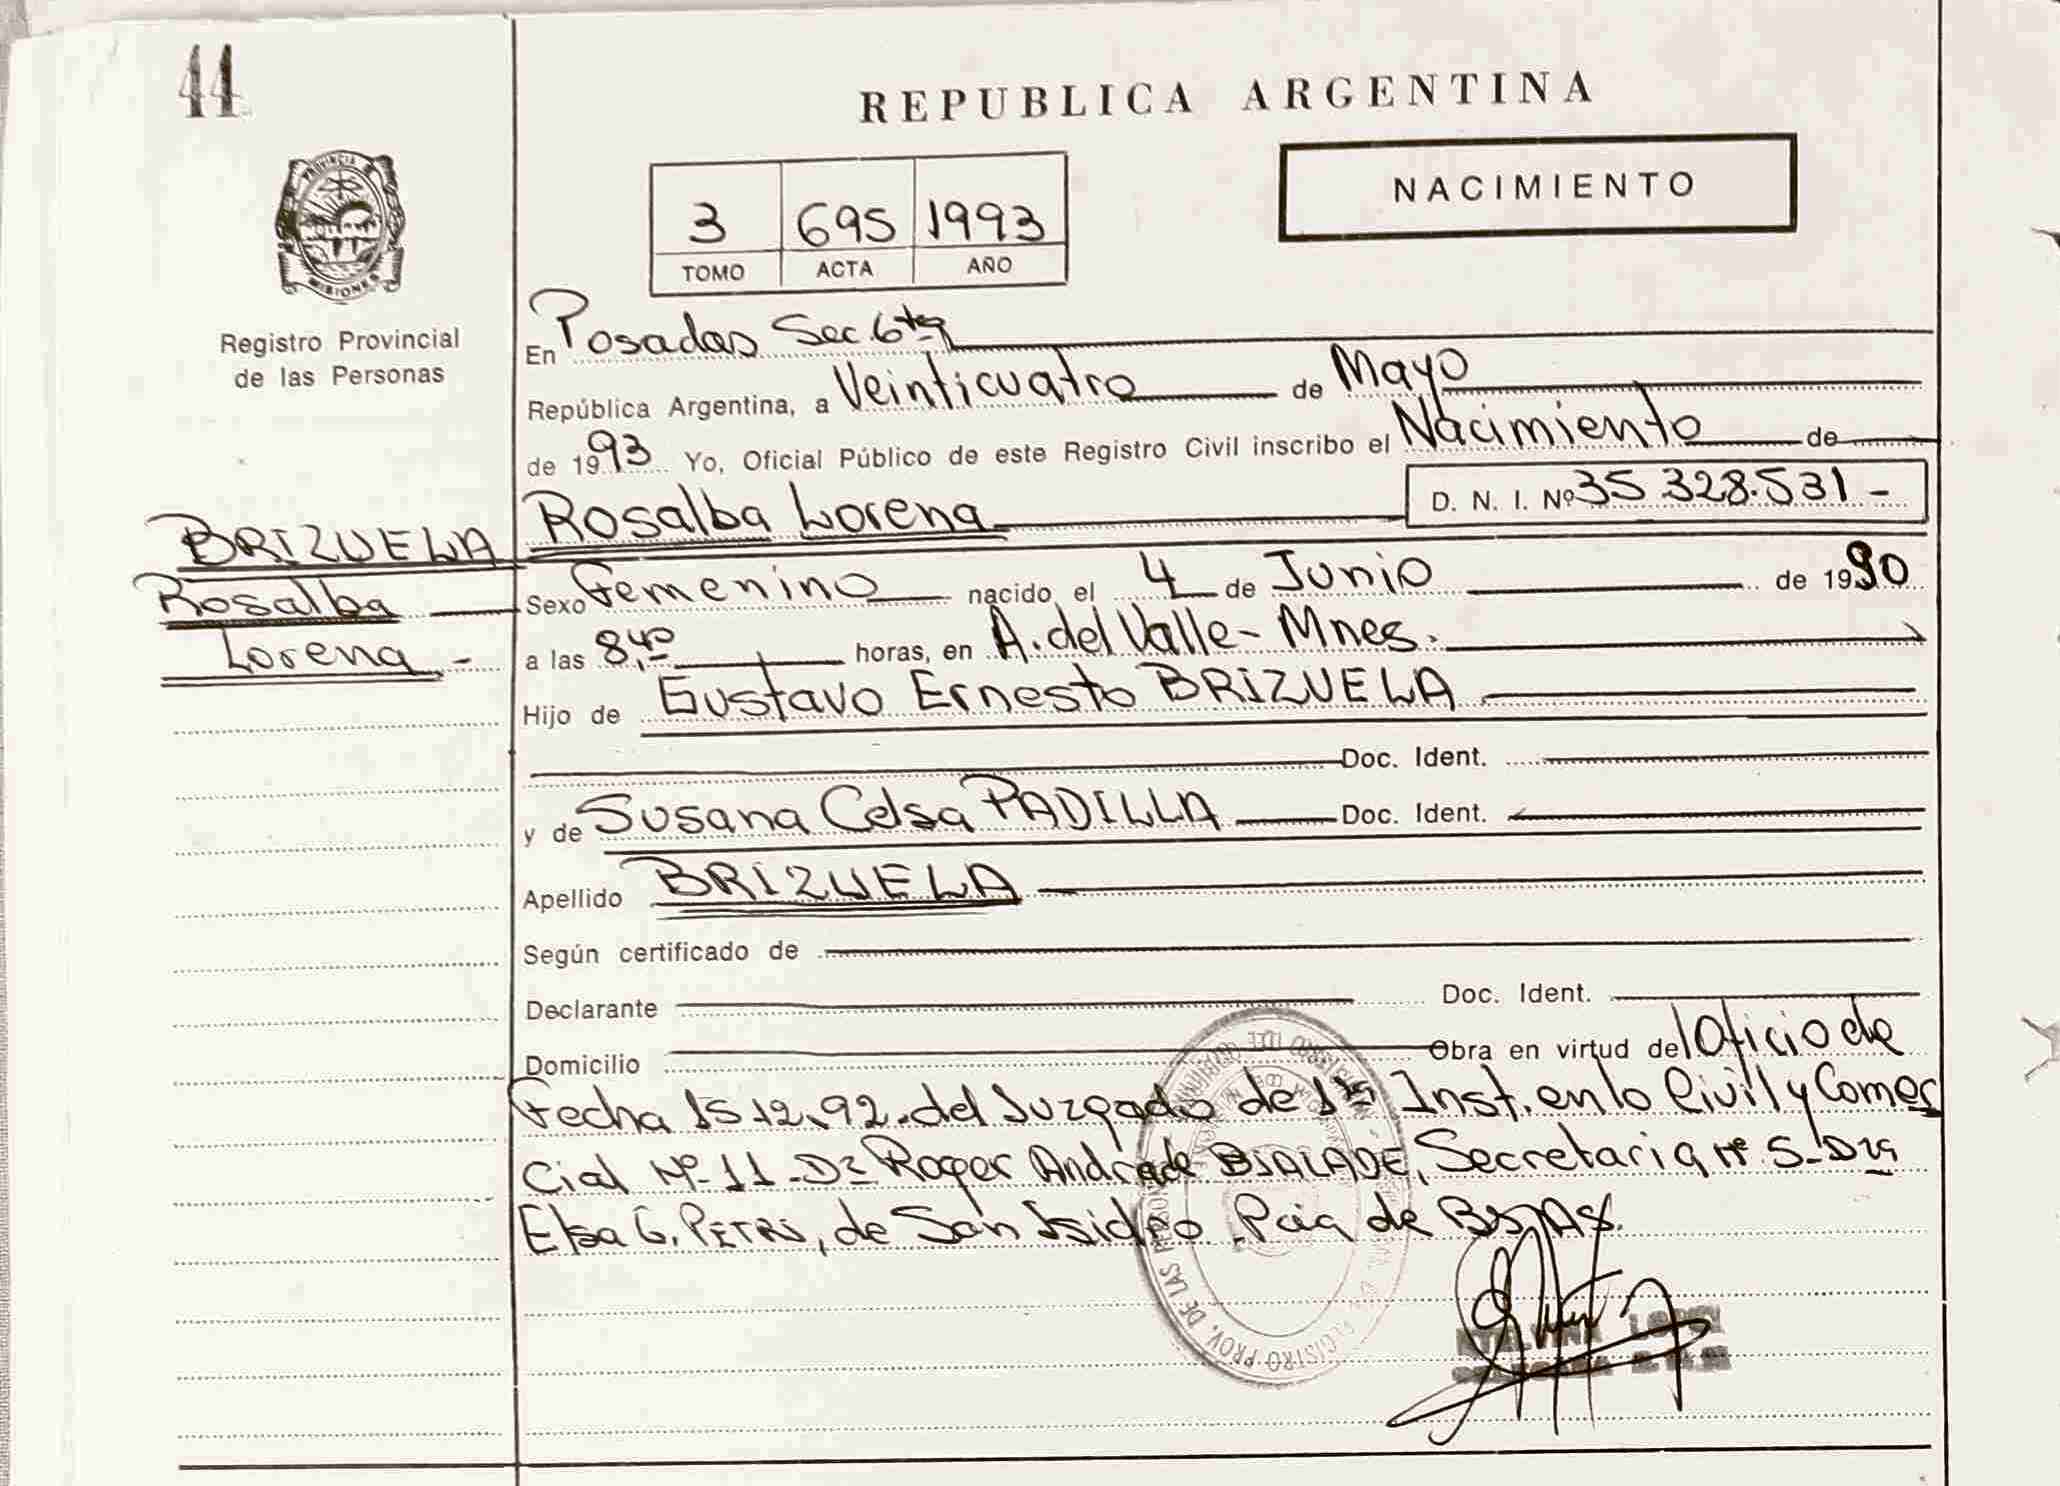 44
REPUBLICA ARGENTINA
NACIMIENTO
3 695 1993
TOMO ACTA AÑO
PROVINCIA DE
MISIONES
Registro Provincial
de las Personas
En Posadas Sec. 6ta
República Argentina, a Veinticuatro de Mayo
de 1993 Yo, Oficial Público de este Registro Civil inscribo el Nacimiento de
Rosalba Lorena D. N. I. Nº 35.328.531-
BRIZUELA
Rosalba
Lorena -
Sexo Femenino nacido el 4 de Junio de 1990
a las 8,40 horas, en A. del Valle - Mnes.
Hijo de Gustavo Ernesto BRIZUELA
Doc. Ident.
y de Susana Celsa PADILLA Doc. Ident.
Apellido BRIZUELA
Según certificado de
Declarante Doc. Ident.
Domicilio Obra en virtud del Oficio de
Fecha 15.12.92. del Juzgado de 1ra Inst. en lo Civil y Comer
cial Nº 11 - Dr Roger Andrade BIALADE, Secretaria Nº 5 - Dra
Elsa G. PETRI, de San Isidro. Pcia de BS. AS.
REGISTRO PROV. DE LAS PERSONAS